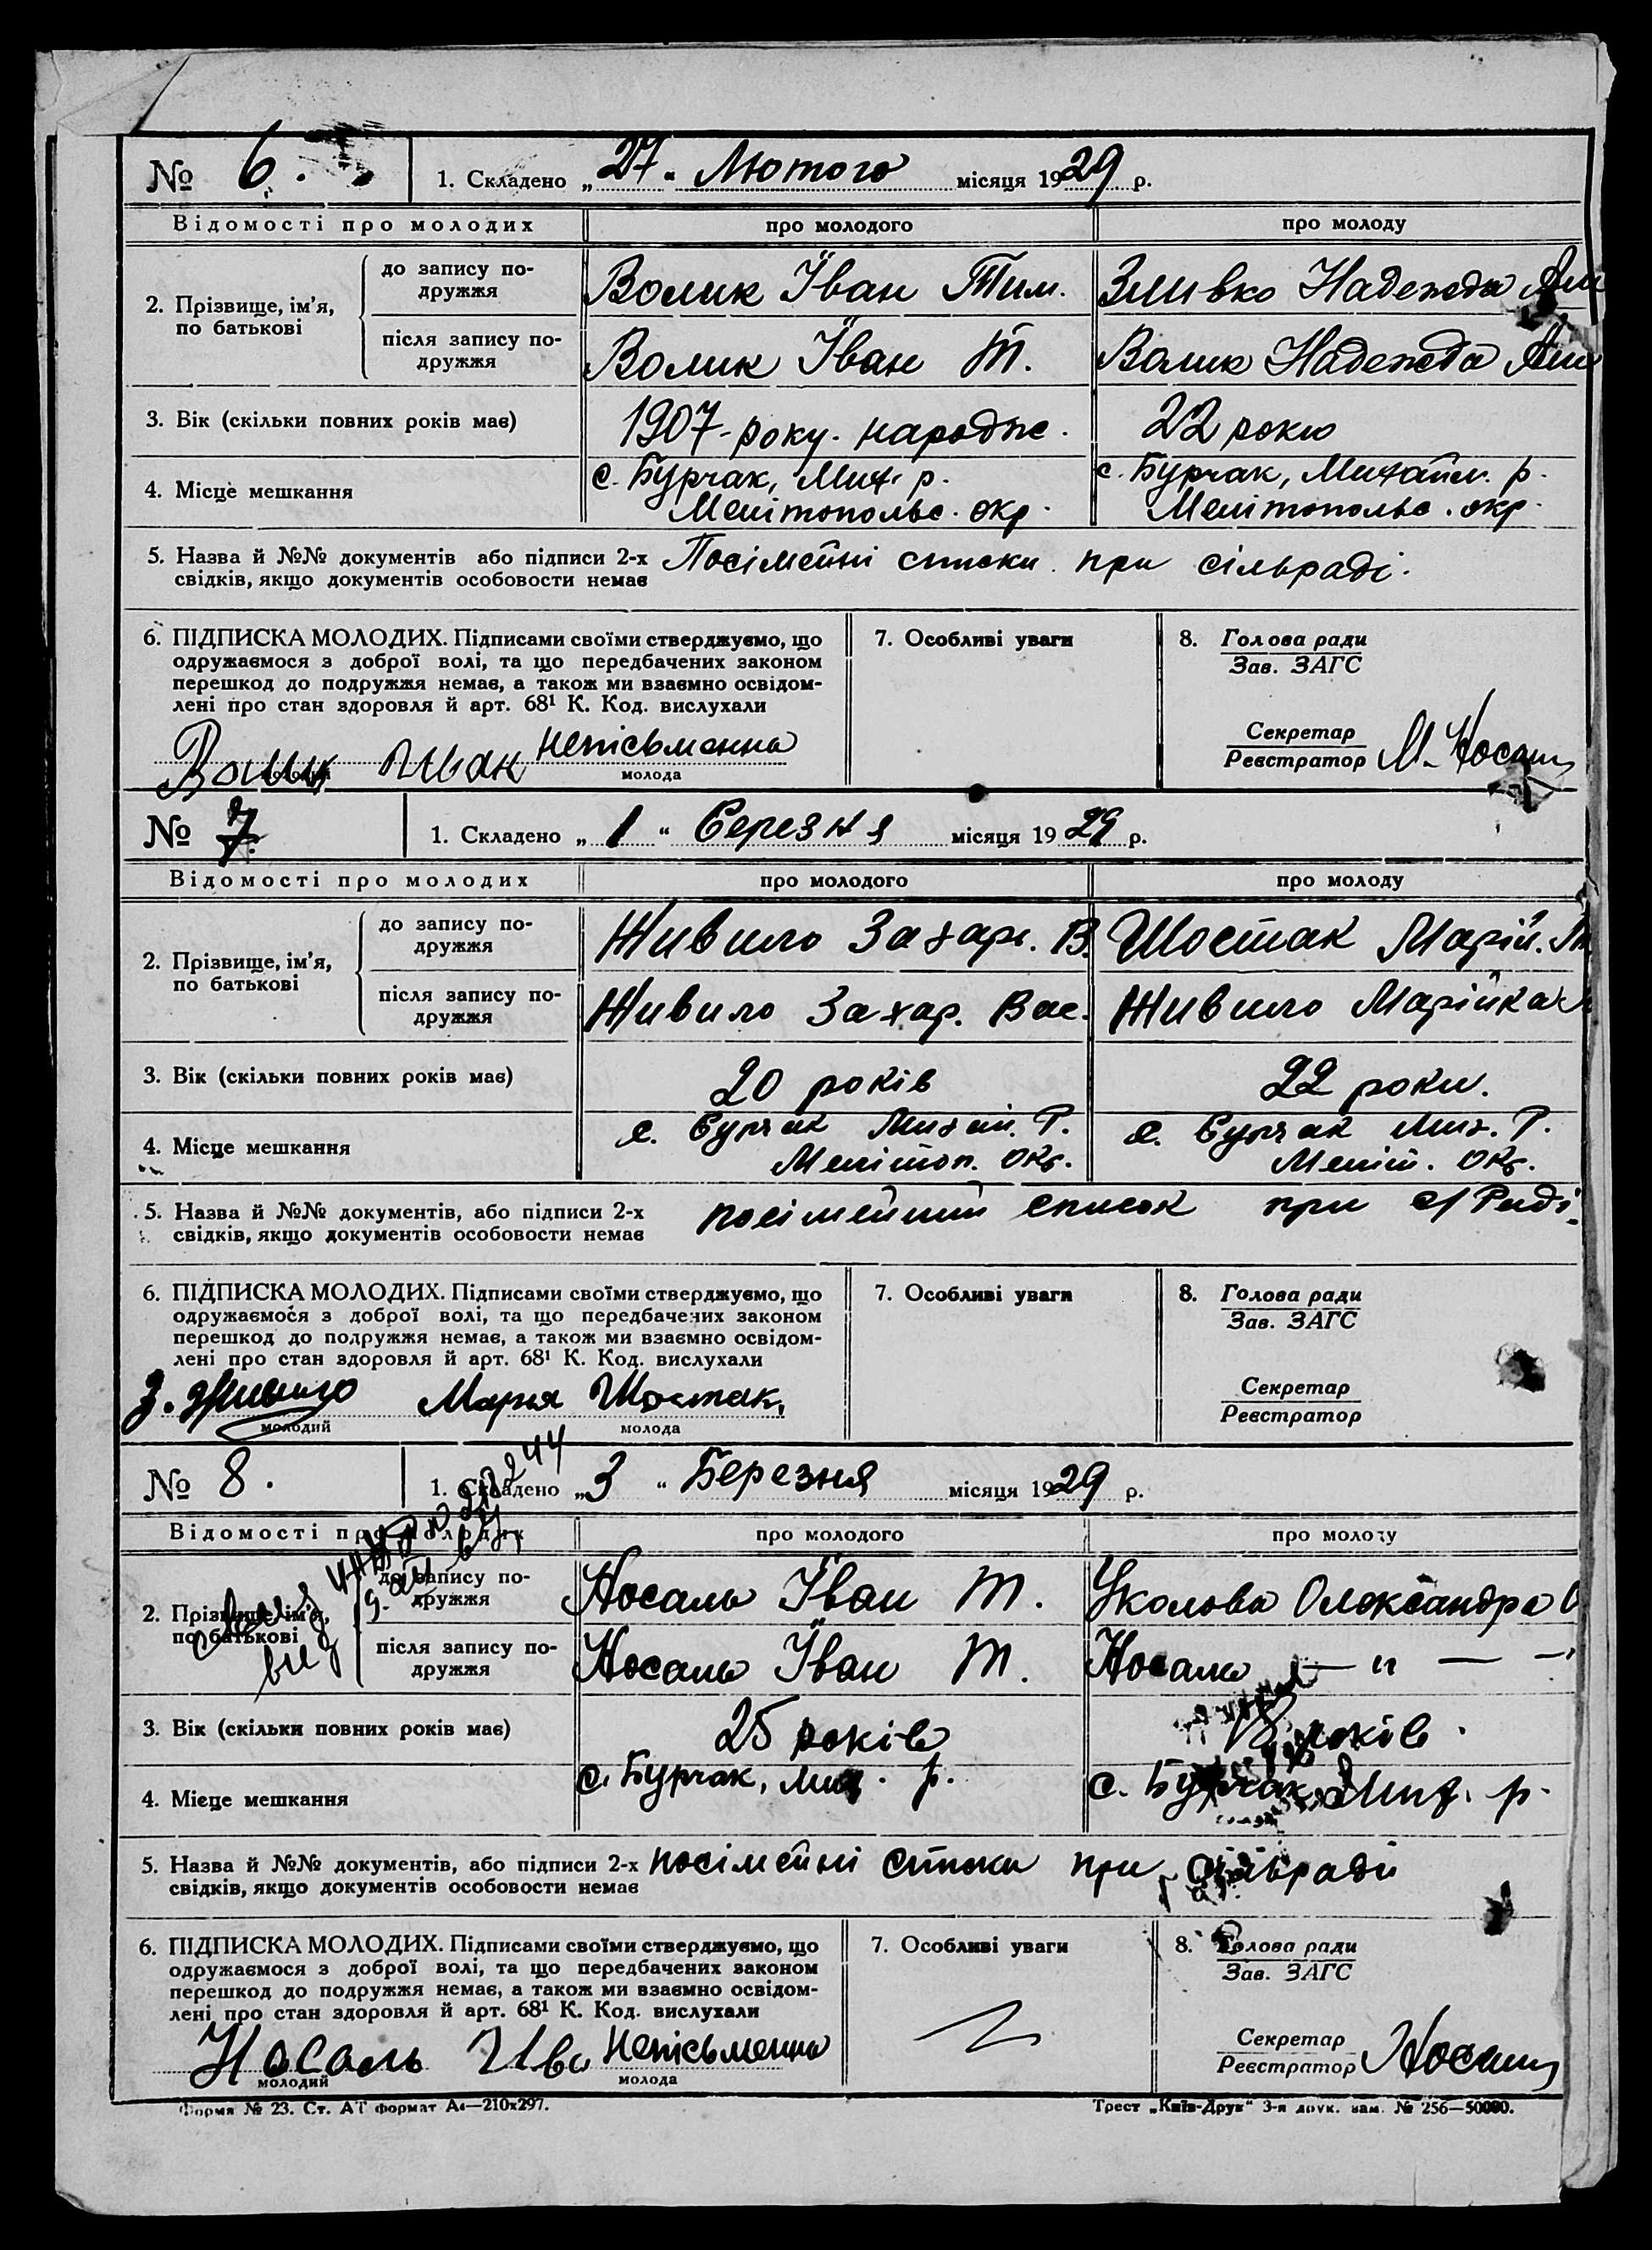 № 6. 1. Складено „27“ Лютого місяця 1929 р.
Відомості про молодих про молодого про молоду
2. Прізвище, ім’я, по батькові
до запису по-
дружжя
Волик Їван Тим. Зливко Надежда
після запису по-
дружжя
Волик Їван Т. Волик Надежда
3. Вік (скільки повних років має) 1907-року. народж. 22 роки
4. Місце мешкання с. Бурчак, Мих. р. с. Бурчак, Михайл. р.
Мелітопольс. окр. Мелітопольс. окр.
5. Назва й №№ документів або підписи 2-х Посімейні списки при сільраді.
свідків, якщо документів особовости немає
6. ПІДПИСКА МОЛОДИХ. Підписами своїми стверджуємо, що 7. Особливі уваги 8. Голова ради
одружаємося з доброї волі, та що передбачених законом Зав. ЗАГС
перешкод до подружжя немає, а також ми взаємно освідом-
лені про стан здоровля й арт. 68¹ К. Код. вислухали
Волик Иван неписьменна Секретар
молода Реєстратор М. Носаль
№ 7. 1. Складено „1“ Березня місяця 1929 р.
Відомості про молодих про молодого про молоду
2. Прізвище, ім’я, по батькові
до запису по-
дружжя
Живило Захарь. В. Шостак Марій.
після запису по-
дружжя
Живило Захар. Вас. Живило Марійка
3. Вік (скільки повних років має) 20 років 22 роки.
4. Місце мешкання с. Бурчак Михай. Р. с. Бурчак Мих. Р.
Мелітоп. Окр. Меліт. Окр.
5. Назва й №№ документів, або підписи 2-х посімейний список при с/Раді.
свідків, якщо документів особовости немає
6. ПІДПИСКА МОЛОДИХ. Підписами своїми стверджуємо, що 7. Особливі уваги 8. Голова ради
одружаємося з доброї волі, та що передбачених законом Зав. ЗАГС
перешкод до подружжя немає, а також ми взаємно освідом-
лені про стан здоровля й арт. 68¹ К. Код. вислухали
З. Живило Марья Шостак, Секретар
молодий молода Реєстратор
№ 8. 1. Складено „3“ Березня місяця 1929 р.
Відомості про молодих про молодого про молоду
2. Прізвище, ім’я, по батькові
до запису по-
дружжя
Носаль Їван Т. Уколова Олександра
після запису по-
дружжя
Носаль Їван Т. Носаль — „ — —
3. Вік (скільки повних років має) 25 років 18 років.
4. Місце мешкання с. Бурчак, Мих. р. с. Бурчак Мих. р.
5. Назва й №№ документів, або підписи 2-х посімейні списки при сільраді
свідків, якщо документів особовости немає
6. ПІДПИСКА МОЛОДИХ. Підписами своїми стверджуємо, що 7. Особливі уваги 8. Голова ради
одружаємося з доброї волі, та що передбачених законом Зав. ЗАГС
перешкод до подружжя немає, а також ми взаємно освідом-
лені про стан здоровля й арт. 68¹ К. Код. вислухали
Носаль Ива неписьменна Секретар
молодий молода Реєстратор Носаль
Форма № 23. Ст. АТ формат А₄—210x297. Трест „Київ-Друк“ 3-я друк. зам. № 256—50000.